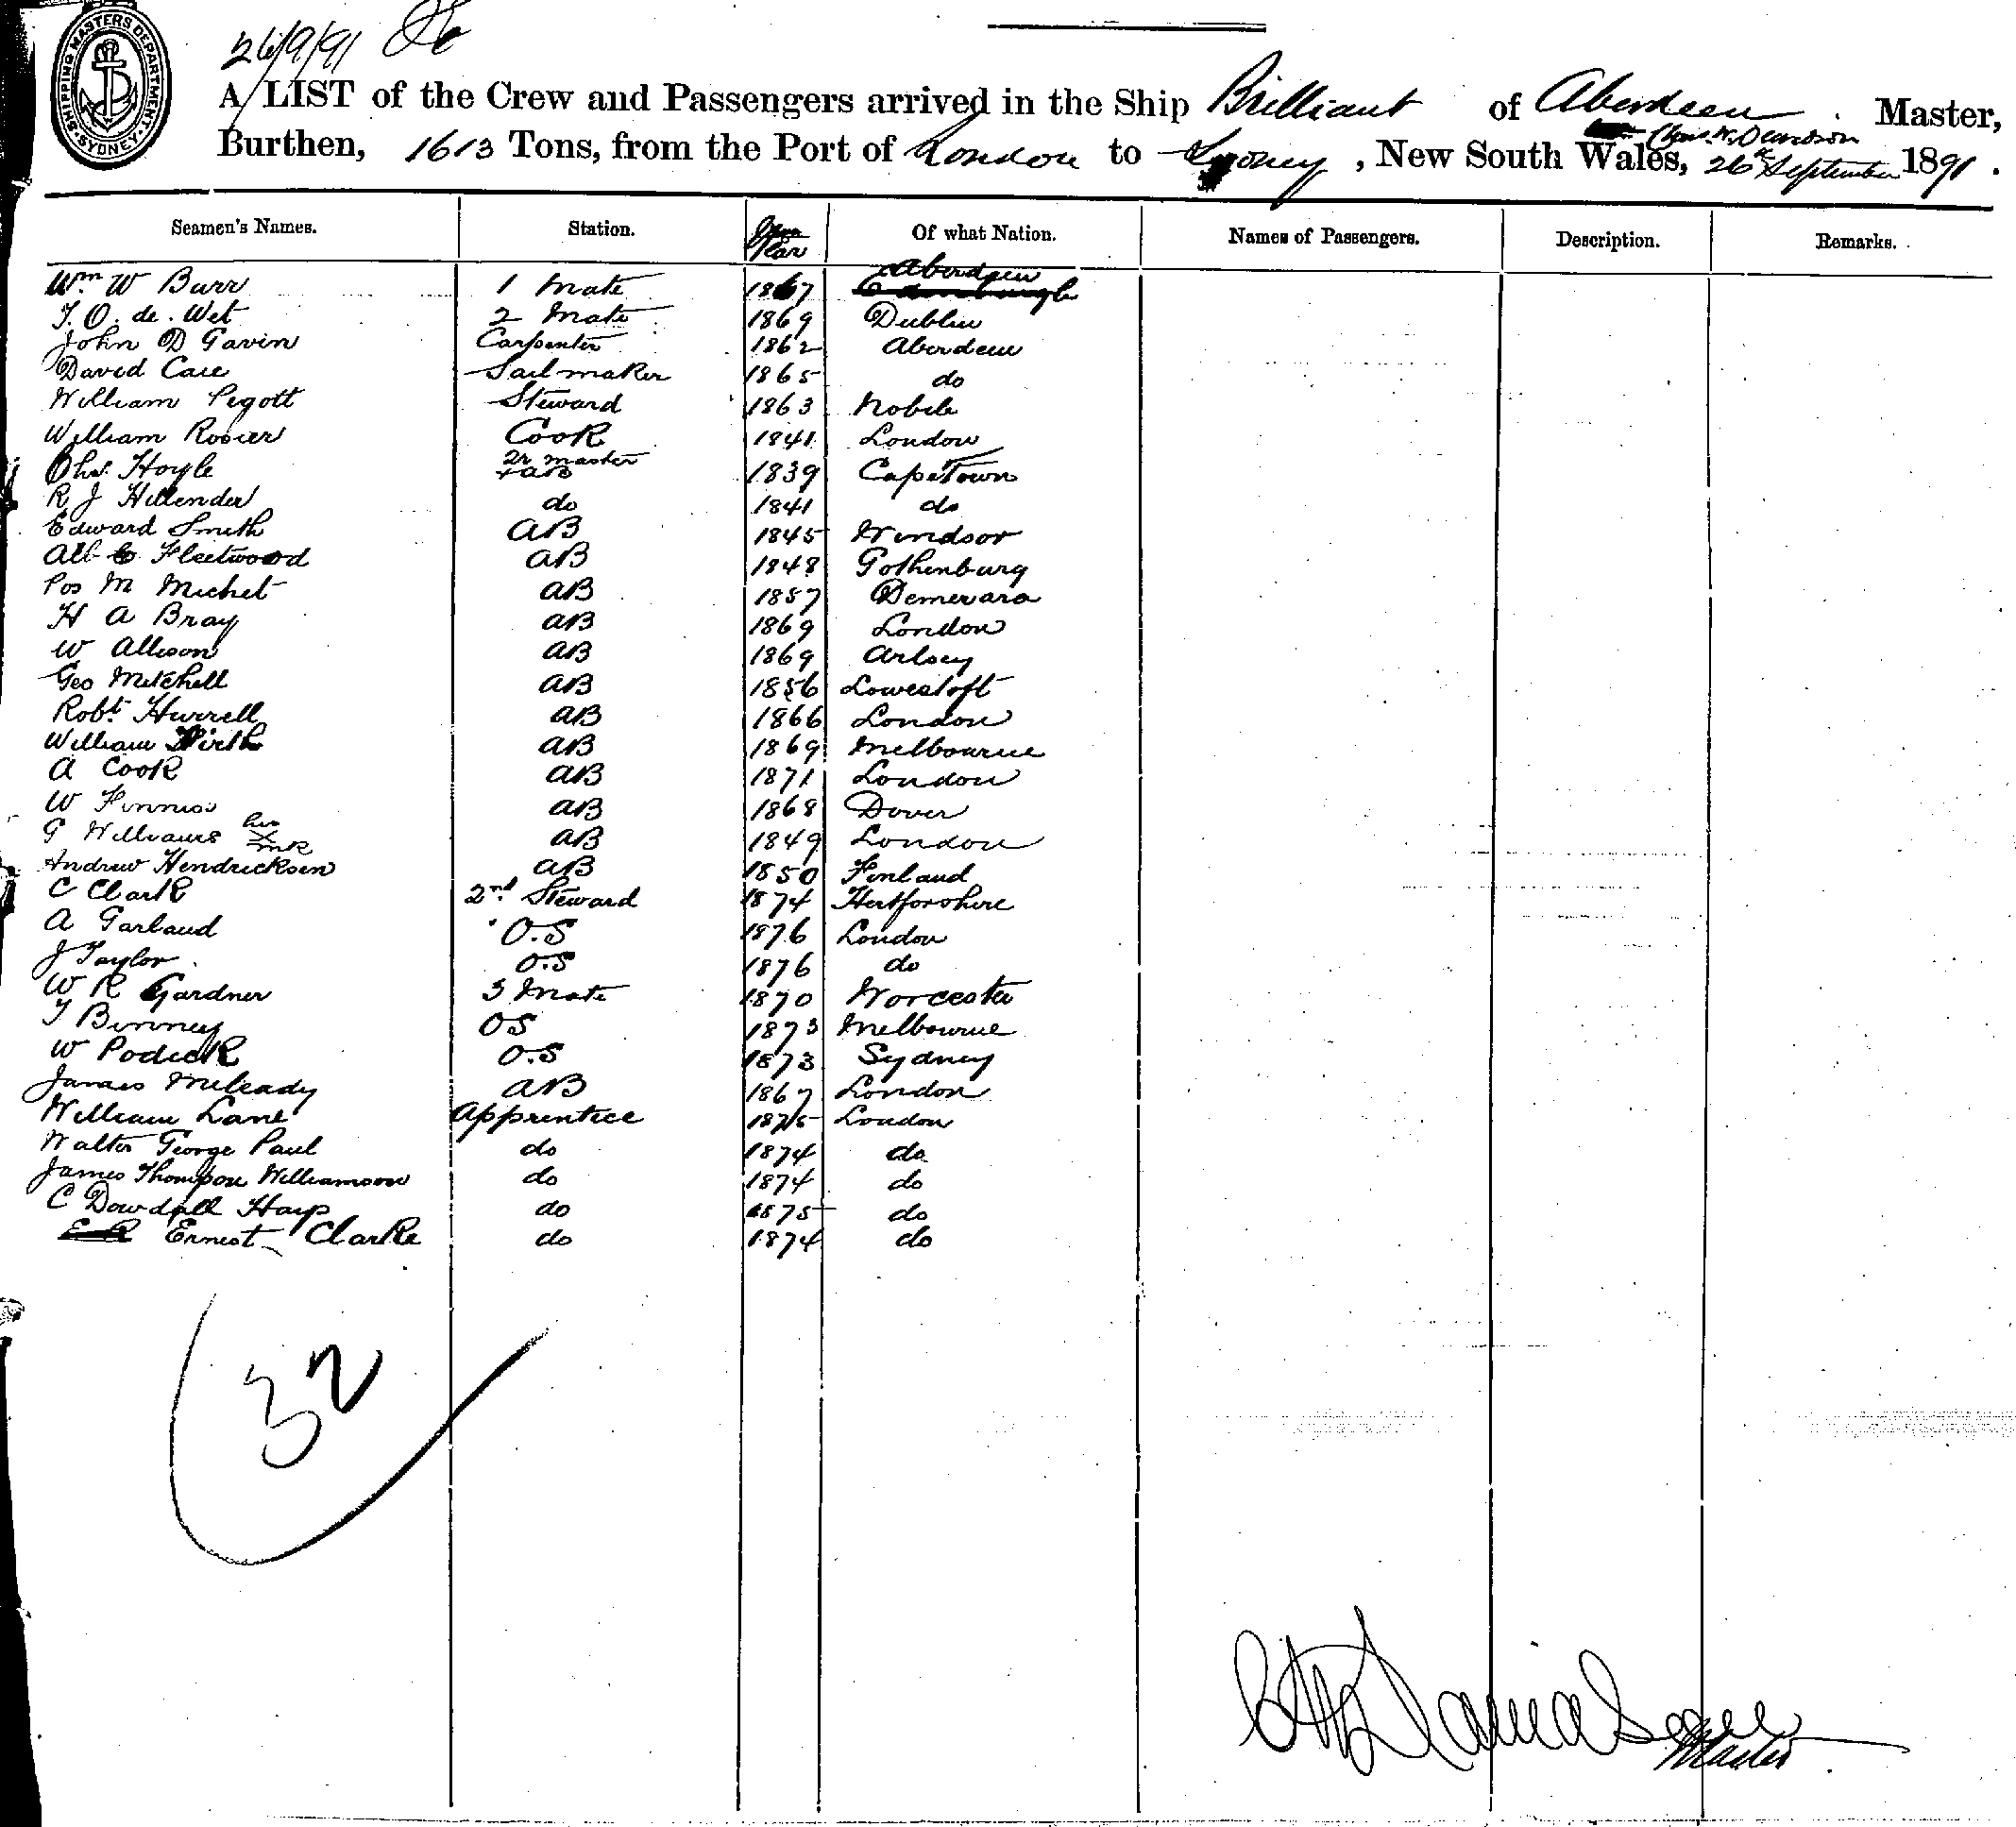 SHIPPING MASTERS DEPARTMENT. SYDNEY
26/9/91
A LIST of the Crew and Passengers arrived in the Ship Brilliant of Aberdeen. Master,
Chas. W. Davidson
Burthen, 1613 Tons, from the Port of London to Sydney, New South Wales, 26th September 1891.
Seamen's Names. Station. Year Of what Nation. Names of Passengers. Description. Remarks.
Wm W Burr 1 Mate 1867 Aberdeen
T. O. de. Wet 2 Mate 1869 Dublin
John D Gavin Carpenter 1862 Aberdeen
David Caie Sailmaker 1865 do
William Pigott Steward 1863 Mobile
William Rosier Cook 1841 London
Chs. Hoyle Qr master + AB 1839 Cape Town
R J Hillender do 1841 do
Edward Smith AB 1845 Windsor
Alb Fleetwood AB 1848 Gothenburg
Pos M Michel AB 1857 Demerara
H A Bray AB 1869 London
W Allison AB 1869 Arlsey
Geo Mitchell AB 1856 Lowestoft
Robt Hurrell AB 1866 London
William Firth AB 1869 Melbourne
A Cook AB 1871 London
W Finniss AB 1868 Dover
G Williams his X mk AB 1849 London
Andrew Hendricksen AB 1850 Finland
C Clark 2nd Steward 1874 Hertforshire
A Garland O.S 1876 London
J Taylor O.S 1876 do
W R Gardner 3 Mate 1870 Worcester
T Binney OS 1873 Melbourne
W Podick O.S 1873 Sydney
James Meleady AB 1867 London
William Lane Apprentice 1875 London
Walter George Paul do 1874 do
James Thompson Williamson do 1874 do
C Dowdall Hays do 1875 do
Ernest Clarke do 1874 do
32
C W Davidson
Master